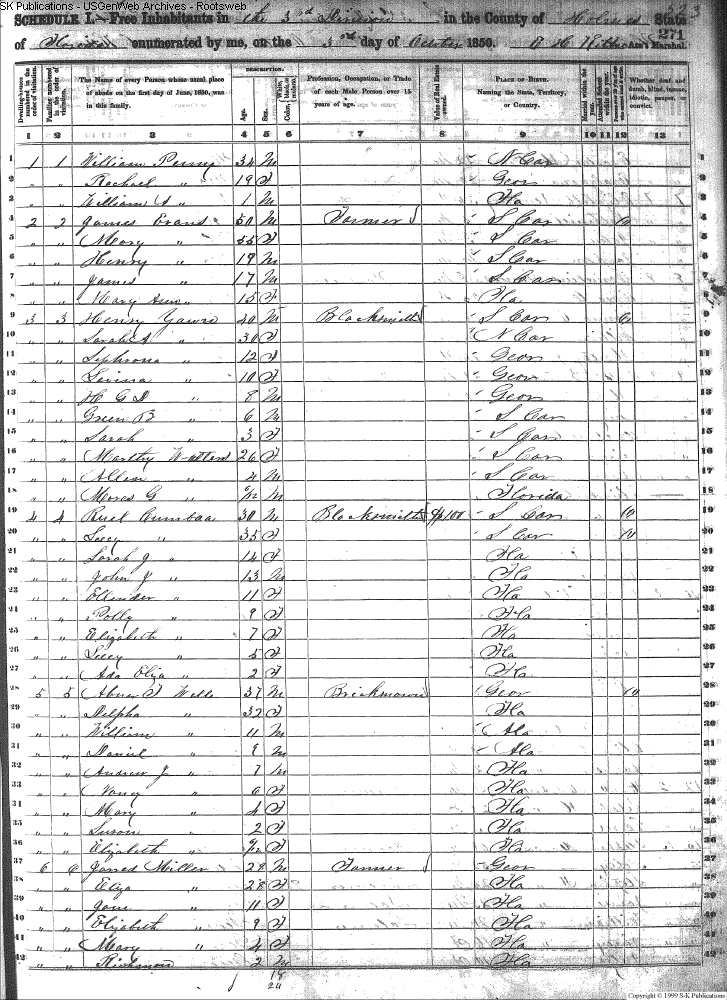 SK Publications - USGenWeb Archives - Rootsweb
SCHEDULE I.—Free Inhabitants in the 3rd Division in the County of Holmes State
of Florida enumerated by me, on the 3rd day of October 1850. Ass't Marshal.
271
Dwelling-houses numbered in the order of visitation.
Families numbered in the order of visitation.
The Name of every Person whose usual place of abode on the first day of June, 1850, was in this family.
DESCRIPTION.
Age.
Sex.
Color, White, black, or mulatto.
Profession, Occupation, or Trade of each Male Person over 15 years of age.
Value of Real Estate owned.
PLACE OF BIRTH. Naming the State, Territory, or Country.
Married within the year.
Attended School within the year.
Whether deaf and dumb, blind, insane, idiotic, pauper, or convict.
1 2 3 4 5 6 7 8 9 10 11 12 13
1 1 1 William Penny 34 M N Car
2 " " Rachael " 19 F Geor
3 " " William " 1 M Fla
4 2 2 James Evans 50 M Farmer S Car
5 " " Mary " 55 F S Car
6 " " Henry " 19 M S Car
7 " " James " 17 M S Car
8 " " Mary Ann " 15 F Fla
9 3 3 Henry Yawn 40 M Blacksmith S Car
10 " " Sarah A " 30 F N Car
11 " " Sephrona " 12 F Geor
12 " " " 10 F Geor
13 " " H G D " 8 M Geor
14 " " Green B " 6 M S Car
15 " " Sarah " 3 F S Car
16 " " Marthy Watters 26 F S Car
17 " " Allen " 4 M S Car
18 " " Moses G " 6/12 M Florida
19 4 4 Ruel Cumbaa 30 M Blacksmith $100 S Car
20 " " Lucy " 35 F S Car
21 " " Sarah J " 14 F Fla
22 " " John J " 13 M Fla
23 " " Ellender " 11 F Fla
24 " " Polly " 9 F Fla
25 " " Elizabeth " 7 F Fla
26 " " Lucy " 5 F Fla
27 " " Ada Eliza " 2 F Fla
28 5 5 Abner Wells 37 M Brickmason Geor
29 " " " 32 F Fla
30 " " William " 11 M Ala
31 " " Daniel " 9 M Ala
32 " " Andrew J " 7 M Fla
33 " " Nancy " 6 F Fla
34 " " Mary " 4 F Fla
35 " " Susan " 2 F Fla
36 " " Elizabeth " F Fla
37 6 6 James Miller 28 M Farmer Geor
38 " " Eliza " 28 F Fla
39 " " Jane " 11 F Fla
40 " " Elizabeth " 9 F Fla
41 " " Mary " 4 F Fla
42 " " 2 M Fla
18
24
Copyright © 1999 S-K Publications